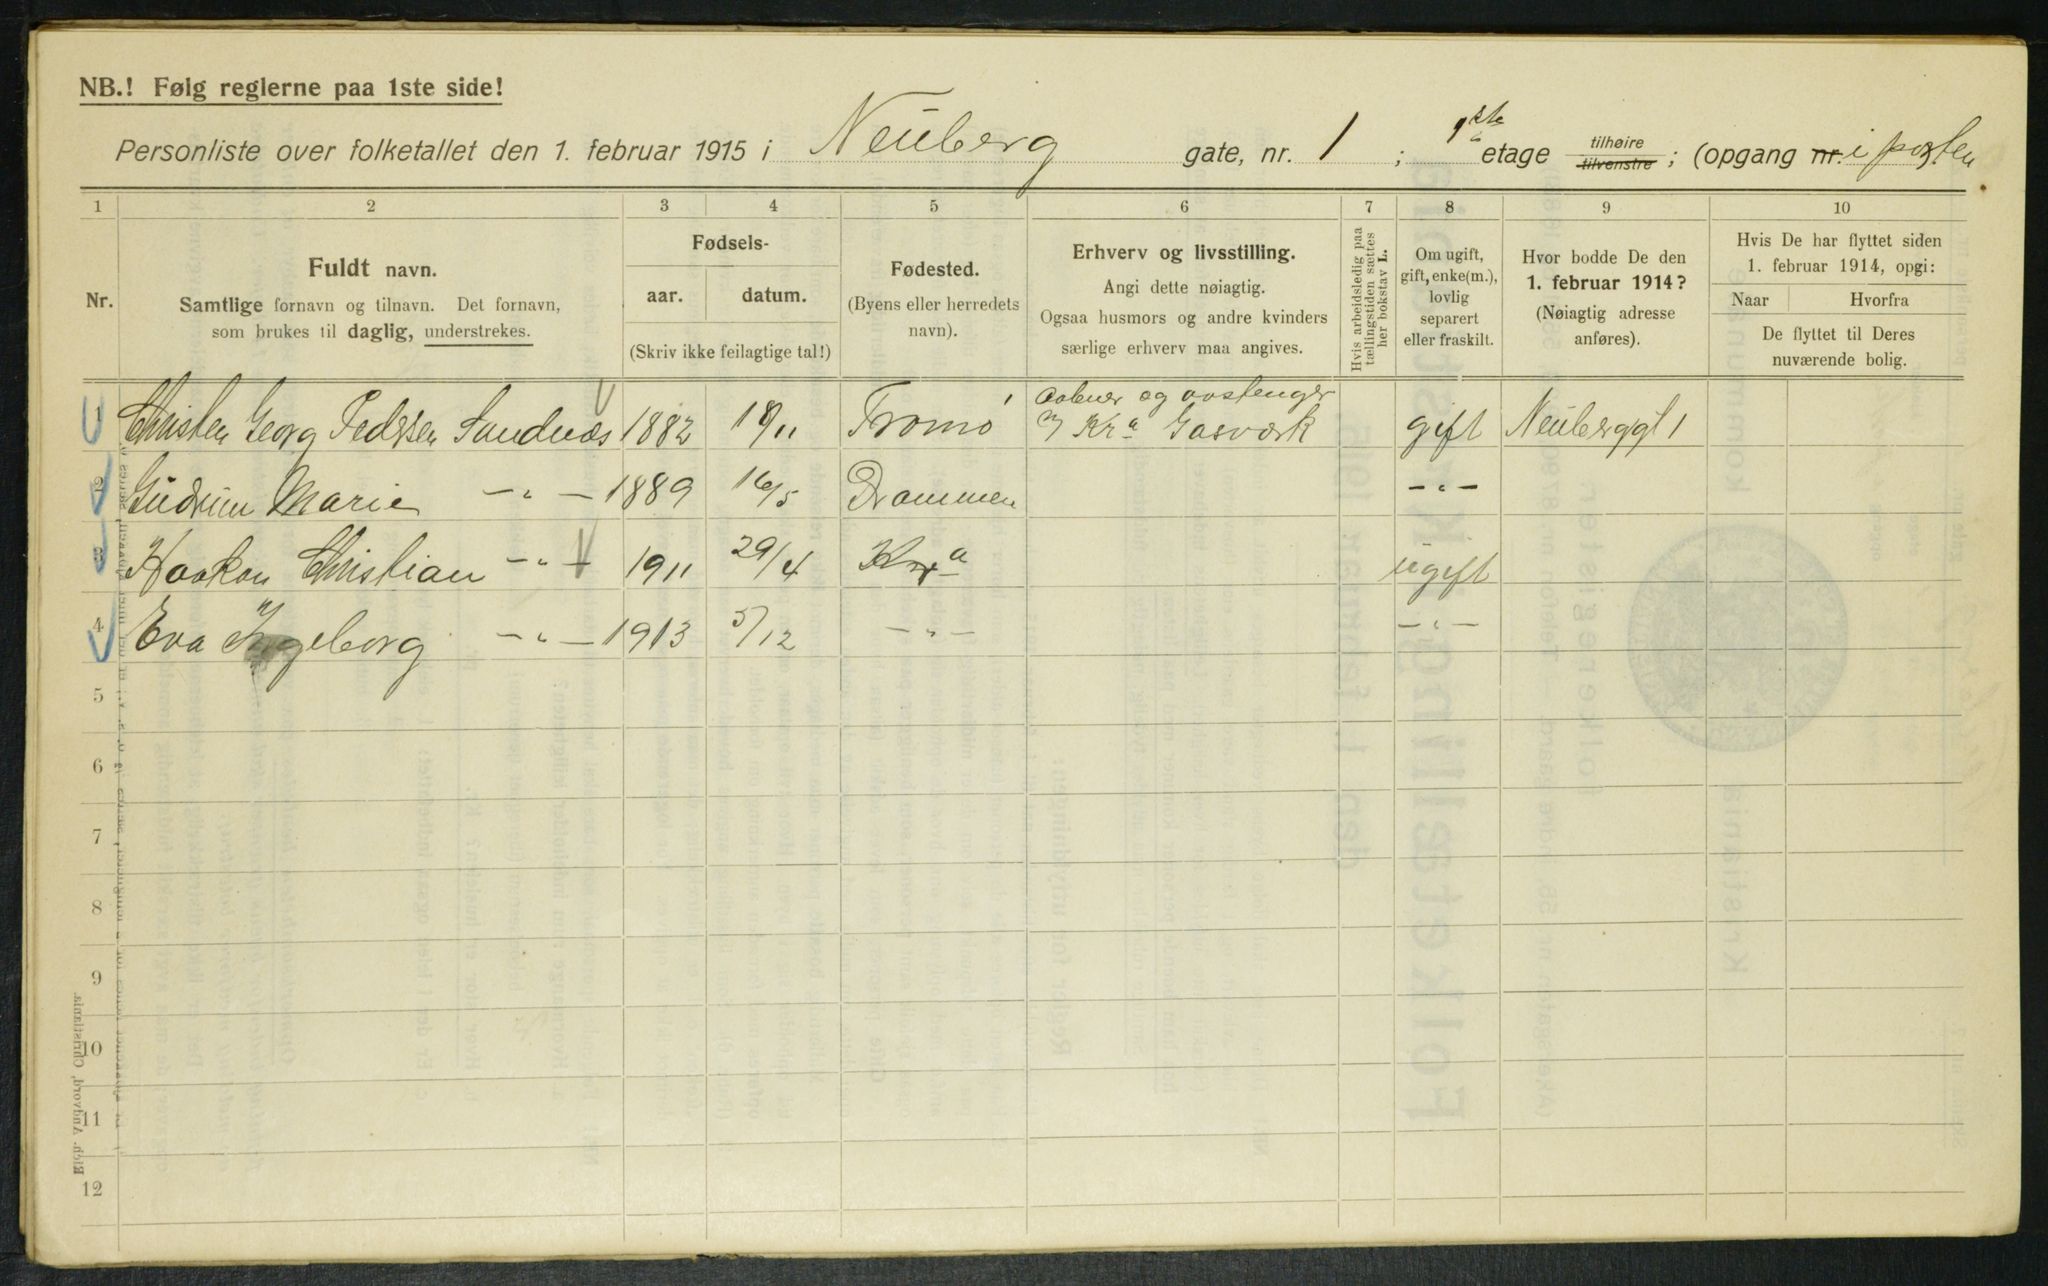 NB.! Følg reglerne paa 1ste side!
Personliste over folketallet den 1. februar 1915 i Neuberg gate, nr. 1 ; 1ste etage tilhøire tilvenstre ; (opgang nr. i porten
1 2 3 4 5 6 7 8 9 10
Nr.
Fuldt navn.
Samtlige fornavn og tilnavn. Det fornavn,
som brukes til daglig, understrekes.
Fødsels-
aar. datum.
(Skriv ikke feilagtige tal!)
Fødested.
(Byens eller herredets
navn).
Erhverv og livsstilling.
Angi dette nøiagtig.
Ogsaa husmors og andre kvinders
særlige erhverv maa angives.
Hvis arbeidsledig paa
tællingstiden sættes
her bokstav L.
Om ugift,
gift, enke(m.),
lovlig
separert
eller fraskilt.
Hvor bodde De den
1. februar 1914?
(Nøiagtig adresse
anføres).
Hvis De har flyttet siden
1. februar 1914, opgi:
Naar Hvorfra
De flyttet til Deres
nuværende bolig.
1 Christen Georg Pedersen Sandnæs 1882 18/11 Tromø Aabner og avstenger v/ Kra Gasværk gift Neuberggt 1
2 Gudrun Marie —"— 1889 16/5 Drammen —"—
3 Haakon Christian —"— 1911 29/4 Kra ugift
4 Eva Ingeborg —"— 1913 5/12 —"— —"—
5
6
7
8
9
10
11
12
Rich. Andvord, Christiania.